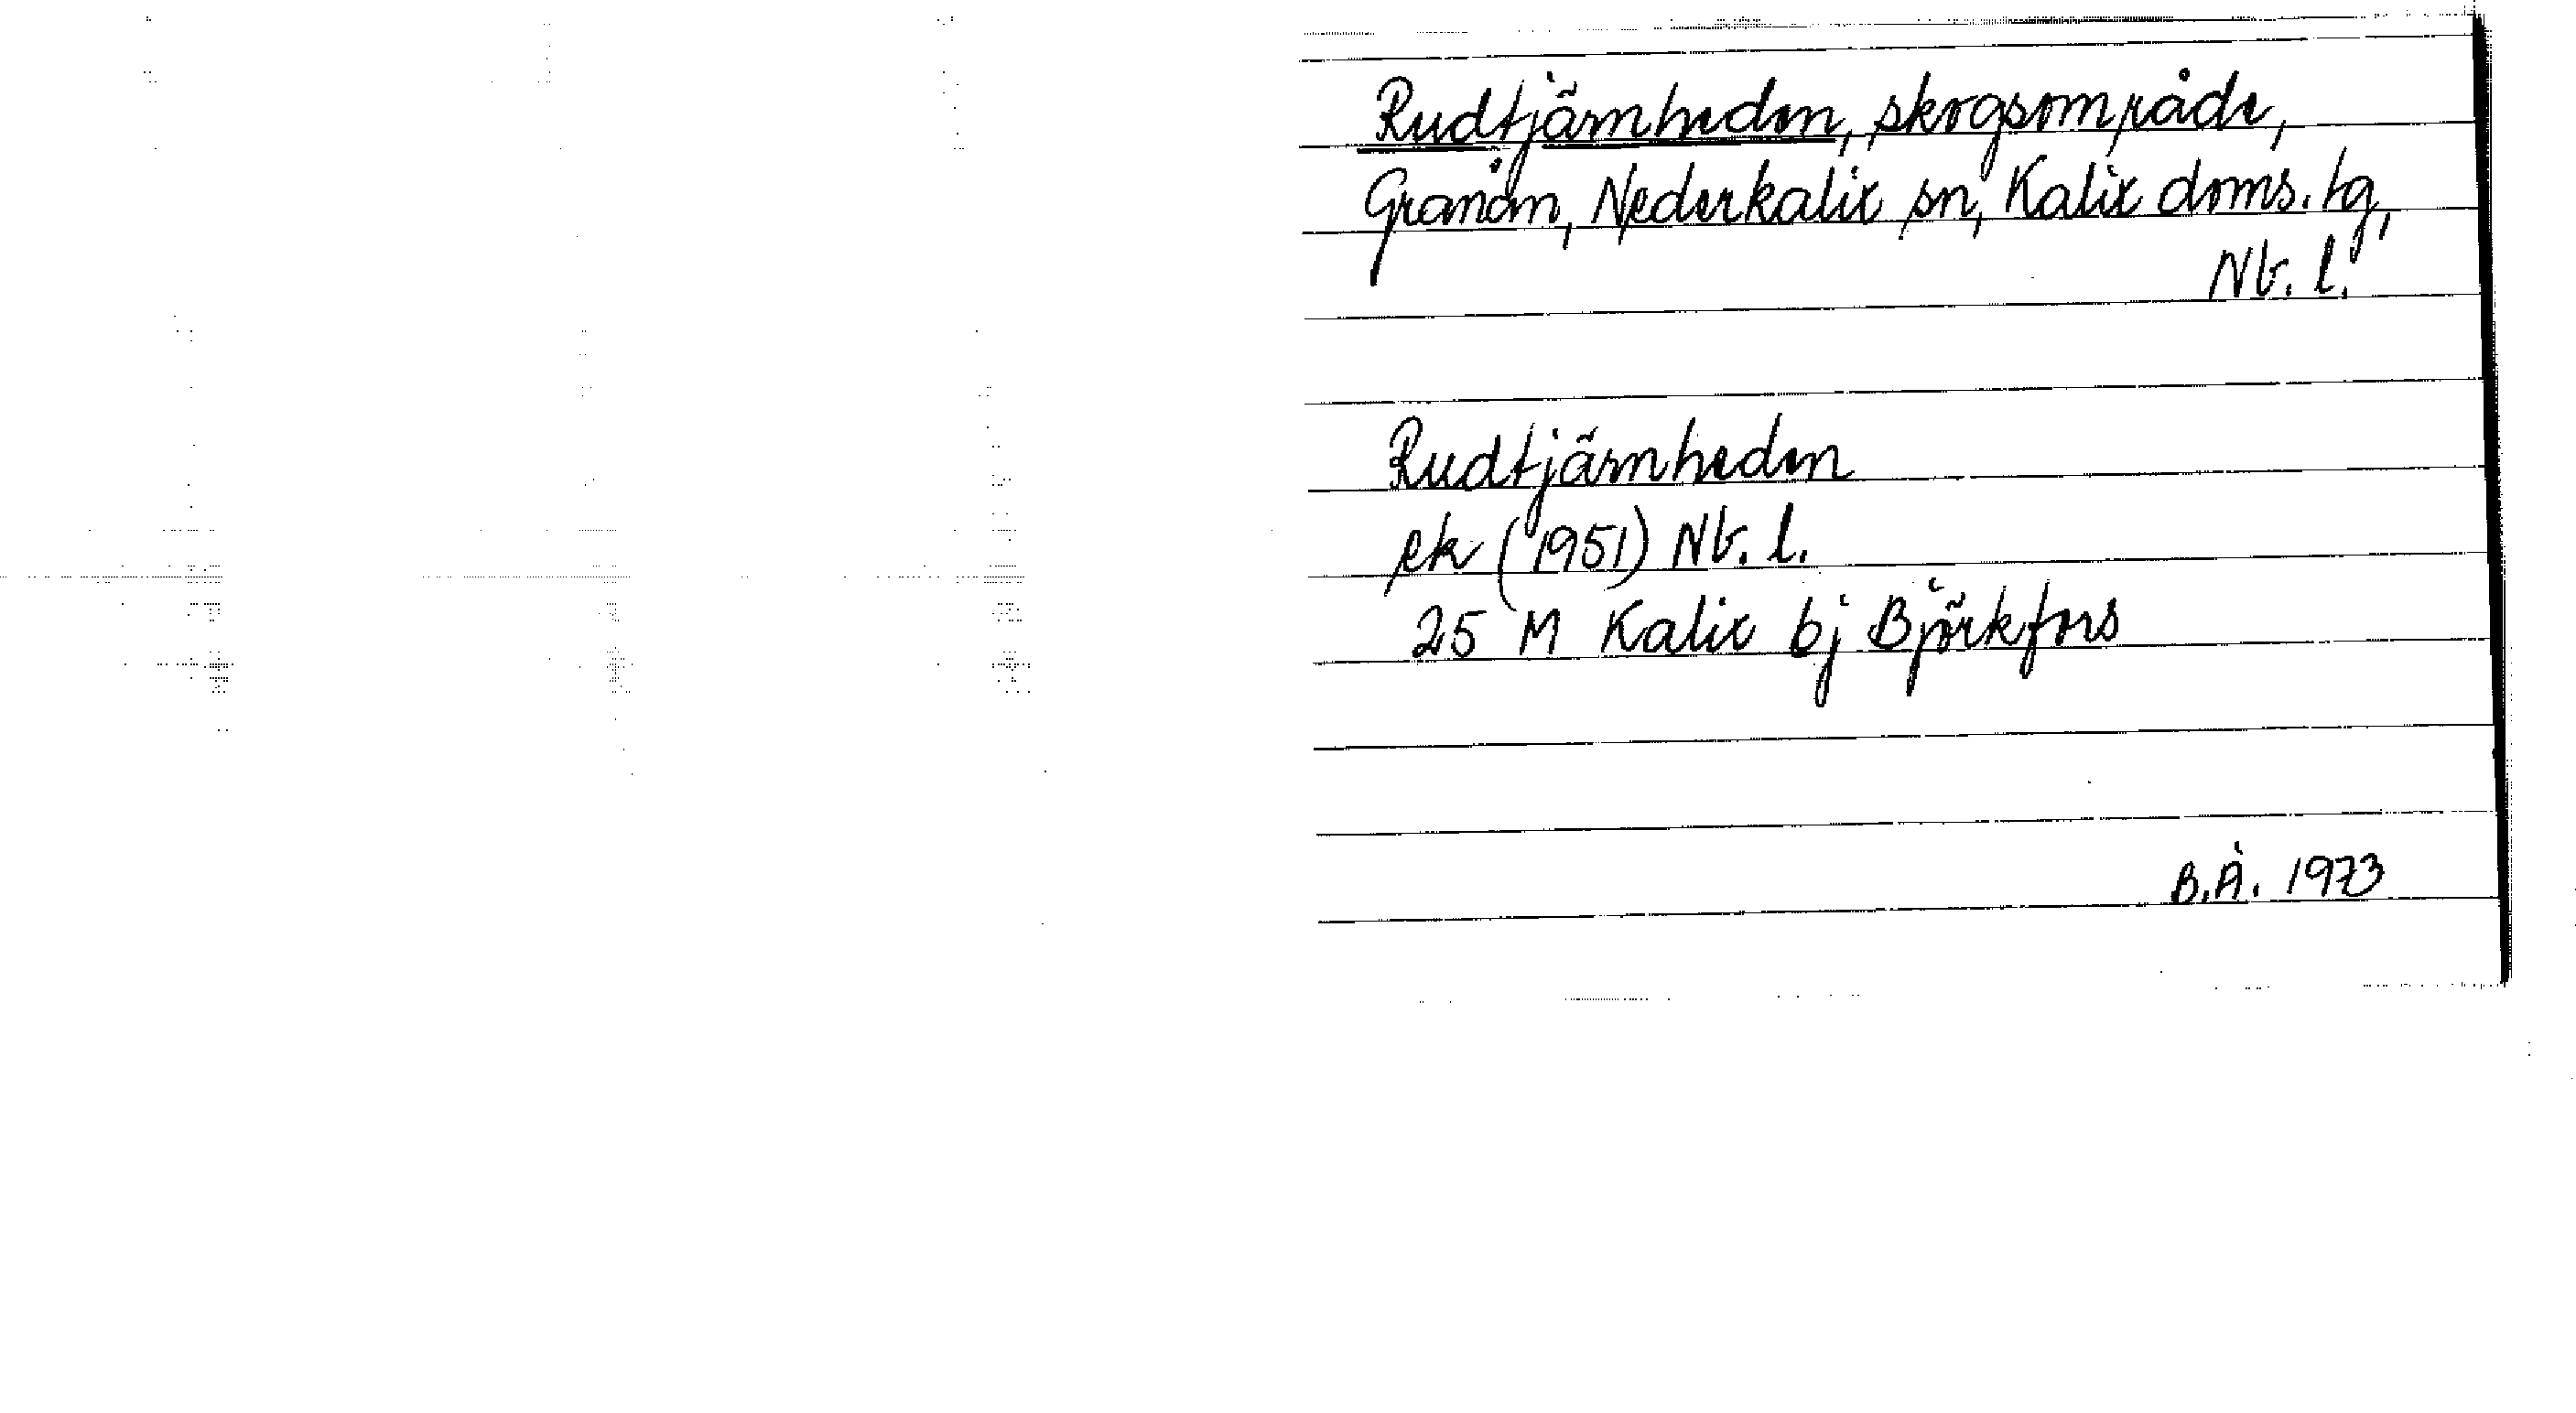 Rudtjärnheden, skogsområde,
Granån, Nederkalix sn, Kalix doms. tg,
Nb. l.
Rudtjärnheden
ek (1951) Nb. l.
25 M Kalix bj Björkfors
B.Å. 1973